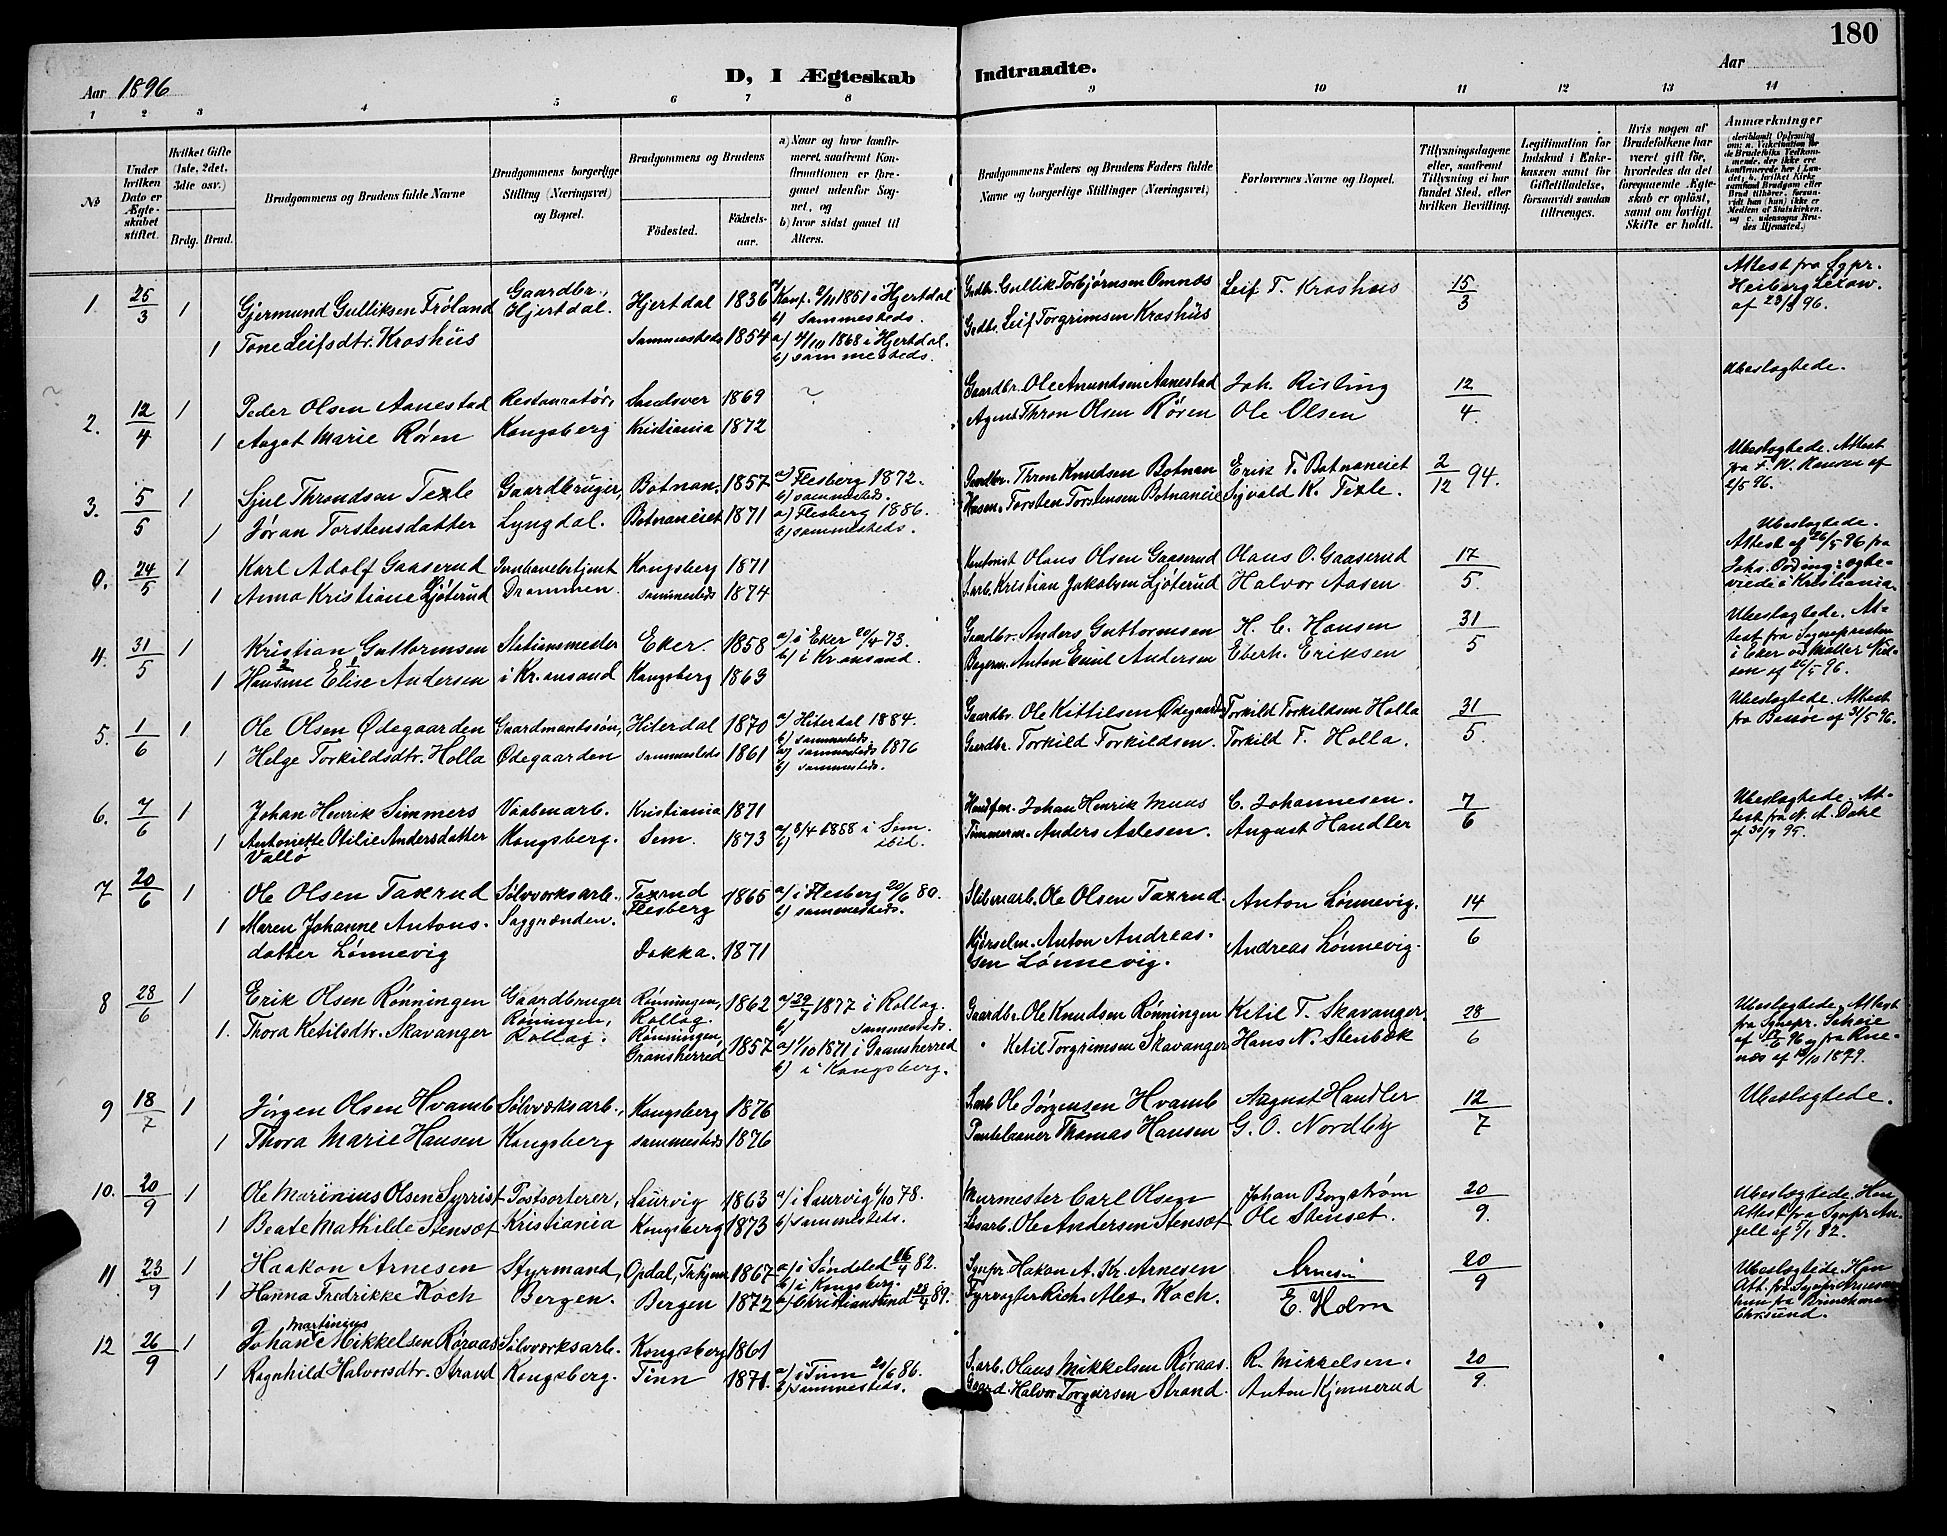 180
Aar 1896
D, I Ægteskab Indtraadte.
Aar
1 2 3 4 5 6 7 8 9 10 11 12 13 14
No
Under hvilken Dato er Ægteskabet stiftet.
Hvilket Gifte (1ste, 2det, 3die osv.)
Brdg. Brud.
Brudgommens og Brudens fulde Navne
Brudgommens borgerlige Stilling (Næringsvei) og Bopæl.
Brudgommens og Brudens
Fødested. Fødselsaar.
a) Naar og hvor konfirmeret, saafremt Konfirmationen er foregaaet udenfor Sognet, og
b) hvor sidst gaaet til Alters.
Brudgommens Faders og Brudens Faders fulde Navne og borgerlige Stillinger (Næringsvei)
Forlovernes Navne og Bopæl.
Tillysningsdagene eller, saafremt Tillysning ei har fundet Sted, efter hvilken Bevilling.
Legitimation for Indskud i Enkekassen samt for Giftetilladelse, forsaavidt saadan tiltrænges.
Hvis nogen af Brudefolkene har været gift før, hvorledes da det foregaaende Ægteskab er opløst, samt om lovligt Skifte er holdt.
Anmærkninger
1. 25/3 1 Gjermund Gulliksen Frøland Gaardbr., Hjertdal. Hjertdal 1836 a) Konf. 1851 i Hjertdal b) Sammesteds. Grdbr. Gullik Torbjørnsen Omnes Leif T. Kroshus 15/3 Attest fra Sgpr. Heiberg
1 Tone Leifsdtr. Kroshus Sammesteds 1854 a) 4/10 1868 i Hjertdal. b) sammesteds. Grdbr. Leif Torgrimsen Kroshus
Ubeslogtede.
2. 12/4 1 Peder Olsen Aanestad Restauratør, Sandsver 1869 ? Gaardbr. Ole Amundsen Aanestad Joh. Risting 12/4
1 Aagot Marie Røren Kongsberg Kristiania 1872 Agent Thron Olsen Røren Ole Olsen
3. 5/5 1 Sjul Throndsen Texle Gaardbruger, Botnan. 1857 a) Flesberg 1872. b) sammesteds. Gaardbr. Thron Knudsen Botnan Erik T. Botnaneiet 2/12 94. Ubeslogtede. Attest fra F. W. Hansen af 2/5 96.
1 Jøran Torstensdatter Lyngdal. Botnaneiet 1871 a) Flesberg 1886. b) sammesteds. Husm. Torsten Torstensen Botnaneie Sjvald K. Texle.
0. 24/5 1 Karl Adolf Gaaserud Drammen. Kongsberg 1871 Kontorist Olaus Olsen Gaaserud Olaus O. Gaaserud 17/5 Ubeslogtede. Attest af 26/5 96 fra Johs. Ording: egteviede i Kristiania.
1 Anna Kristiane Ljøterud sammesteds 1874 S.arb. Kristian Jakobsen Ljøterud Halvor Aasen
4. 31/5 1 Kristian Guttormsen Stationsmester Eker. 1858 a) i Eker 20/4 73. b) i Kr.ansand. Gaardbr. Anders Guttormsen H. C. Hansen 31/5 Ubeslogtede. Attest fra Sognepresten i Eker og Møller Nielsen af 26/5 96.
1 Hansine Elise Andersen i Kr.ansand Kongsberg 1863 Bagerm. Anton Emil Andersen Eberh. Eriksen
5. 1/6 1 Ole Olsen Ødegaarden Gaardmandssøn, Hiterdal 1870 a) Hiterdal 1884. b) sammesteds. Gaardbr. Ole Kittilsen Ødegaarden Torkild Torkildsen Holla 31/5. Ubeslogtede. Attest fra af 31/5 96.
1 Helge Torkildsdtr. Holla Ødegaarden sammesteds 1861 a) sammesteds 1876 b) sammesteds. Gaardbr. Torkild Torkildsen. Torkild T. Holla.
6. 7/6 1 Johan Henrik Simmers Vaabenarb. Kristiania 1871 Handlm. Johan Henrik Muus C. Johannesen. 7/6 Ubeslogtede. Attest fra N. A. Dahl af 30/9 95.
1 Antoniette Otilie Andersdatter Vallø Kongsberg. Sem. 1873 a) 8/4 1858 i Sem. b) ibid. Timmerm. Anders Aslesen. August Handler
7 20/6 1 Ole Olsen Taxrud Sølvverksarb., Saggrænden. Taxrud Flesberg 1865 a) i Flesberg 20/6 80. b) sammesteds. Slibemarb. Ole Olsen Taxrud Anton Lønnevig. 14/6
1 Maren Johanne Antonsdatter Lønnevig Dokka. 1871 Kjørselm. Anton Andreassen Lønnevig. Andreas Lønnevig.
8 28/6 1 Erik Olsen Rønningen Gaardbruger Røningen, Rollag. Rønningen, Rollag. 1862 a) 29/7 1877 i Rollag. b) sammesteds. Gaardbr. Ole Knudsen Rønningen Ketil T. Skavanger. 28/6 Ubeslogtede. Attest fra Sognepr. Scheie
1. Thora Ketilsdtr. Skavanger Rønningen, Gransherred 1857 a) 1/10 1871 i Gransherred b) i Kongsberg. " Ketil Torgrimsen Skavanger Hans N. Stenbæk
9 18/7 1 Jørgen Olsen Hvamb Sølvværksarb., Kongsberg 1876 S.arb. Ole Jørgensen Hvamb August Handler 12/7 Ubeslogtede.
1 Thora Marie Hansen Kongsberg sammesteds 1876 Pantelaaner Thomas Hansen G. O. Nordby
10. 20/9 1 Ole Marinius Olsen Syrrist Postsorterer, Laurvig 1863 a) i Laurvig 6/10 78. b) sammesteds. Murmester Carl Olsen Johan Borgstrøm 20/9. Ubeslogtede. Han Attest fra Sognpr. Angell af 5/1 82.
1 Beate Mathilde Stensæt Kristiania Kongsberg 1873 Ole Andersen Stensæt Ole Stenset.
11 23/9 1 Haakon Arnesen Styrmand, Opdal, Trhjem 1867 a) i Søndeled 16/4 82. b) i Kongsberg. Sognpr Hakon A. Kr. Arnesen Arnesen 20/9 Ubeslogtede. Han Att. fra Sognpr. Arnesen hun fra Brinchmann
1 Hanna Fredrikke Koch Bergen. Bergen 1872 a) Christiansund 28/4 89. Fyrvogter Rich. Alex. Koch. E. Holm
12 26/9 1 Johan Martinius Mikkelsen Røraas Sølvværksarb. Kongsberg 1861 S.arb. Olaus Mikkelsen Røraas R. Mikkelsen. 20/9.
1 Ragnhild Halvorsdtr. Strand Kongsberg. Tinn 1871. a) i Tinn 20/6 86. b) sammesteds. Gaard. Halvor Torgeirsen Strand. Anton Kjennerud